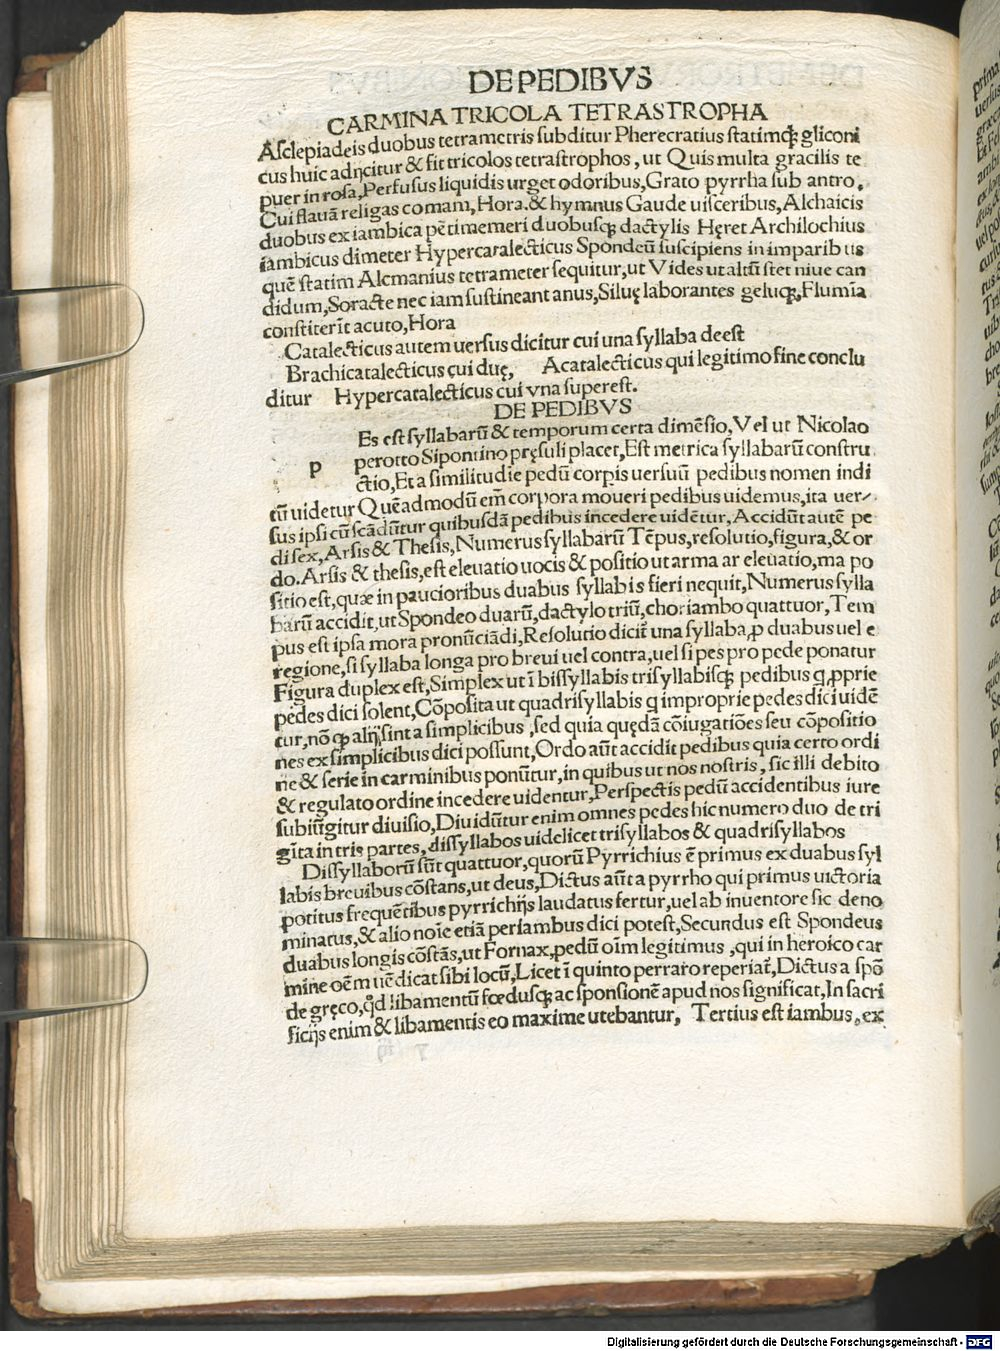 DE PEDIBVS
CARMINA TRICOLA TETRASTROPHA
Asclepiadeis duobus tetrametris subditur Pherecratius statimqȝ gliconi
cus huic adijcitur & fit tricolos tetrastrophos, ut Quis multa gracilis te
puer in rosa, Perfusus liquidis urget odoribus, Grato pyrrha sub antro,
Cui flauā religas comam, Hora. & hymnus Gaude uisceribus, Alchaicis
duobus ex iambica pētimemeri duobusqȝ dactylis Hęret Archilochius
iambicus dimeter Hypercatalecticus Spondeū suscipiens in imparibus
quē statim Alcmanius tetrameter sequitur, ut Vides ut altū stet niue can
didum, Soracte nec iam sustineant anus, Siluę laborantes geluqȝ, Flumīa
constiterīt acuto, Hora
Catalecticus autem uersus dicitur cui una syllaba deest
Brachicatalecticus cui duę, Acatalecticus qui legitimo fine conclu
ditur Hypercatalecticus cui vna superest.
DE PEDIBVS
p Es est syllabarū & temporum certa dimēsio, Vel ut Nicolao
perotto Sipontino pręsuli placet, Est metrica syllabarū constru
ctio, Et a similitudie pedū corpis uersuū pedibus nomen indi
tū uidetur Quēadmodū em̄ corpora moueri pedibus uidemus, ita uer/
sus ipsi cū scādūtur quibusdā pedibus incedere uidētur, Accidūt autē pe
di sex, Arsis & Thesis, Numerus syllabarū Tēpus, resolutio, figura, & or
do. Arsis & thesis, est eleuatio uocis & positio ut arma ar eleuatio, ma po
sitio est, quæ in paucioribus duabus syllabis fieri nequit, Numerus sylla
barū accidit, ut Spondeo duarū, dactylo triū, choriambo quattuor, Tem
pus est ipsa mora pronūciādi, Resolutio dicit̄ una syllaba ꝓ duabus uel e
regione, si syllaba longa pro breui uel contra, uel si pes pro pede ponatur
Figura duplex est, Simplex ut ī bissyllabis trisyllabisqȝ pedibus q ꝓprie
pedes dici solent, Cōposita ut quadrisyllabis q improprie pedes dici uidē
tur, nō qȝ alij sint a simplicibus, sed quia quędā cōiugatiōes seu cōpositio
nes ex simplicibus dici possunt, Ordo aūt accidit pedibus quia certo ordi
ne & serie in carminibus ponūtur, in quibus ut nos nostris, sic illi debito
& regulato ordine incedere uidentur, Perspectis pedū accidentibus iure
subiūgitur diuisio, Diuidūtur enim omnes pedes hic numero duo de tri
gīta in tris partes, dissyllabos uidelicet trisyllabos & quadrisyllabos
Dissyllaborū sūt quattuor, quorū Pyrrichius ē primus ex duabus syl
labis breuibus cōstans, ut deus, Dictus aūt a pyrrho qui primus uictoria
potitus frequētibus pyrrichijs laudatus fertur, uel ab inuentore sic deno
minatus, & alio noīe etiā periambus dici potest, Secundus est Spondeus
duabus longis cōstās, ut Fornax, pedū oīm legitimus, qui in heroico car
mine oēm uē dicat sibi locū, Licet ī quinto perraro reperiat̄, Dictus a spō
de gręco, qd̄ libamentū fœdusqȝ ac sponsionē apud nos significat, In sacri
ficijs enim & libamentis eo maxime utebantur, Tertius est iambus, ex
Digitalisierung gefördert durch die Deutsche Forschungsgemeinschaft - DFG